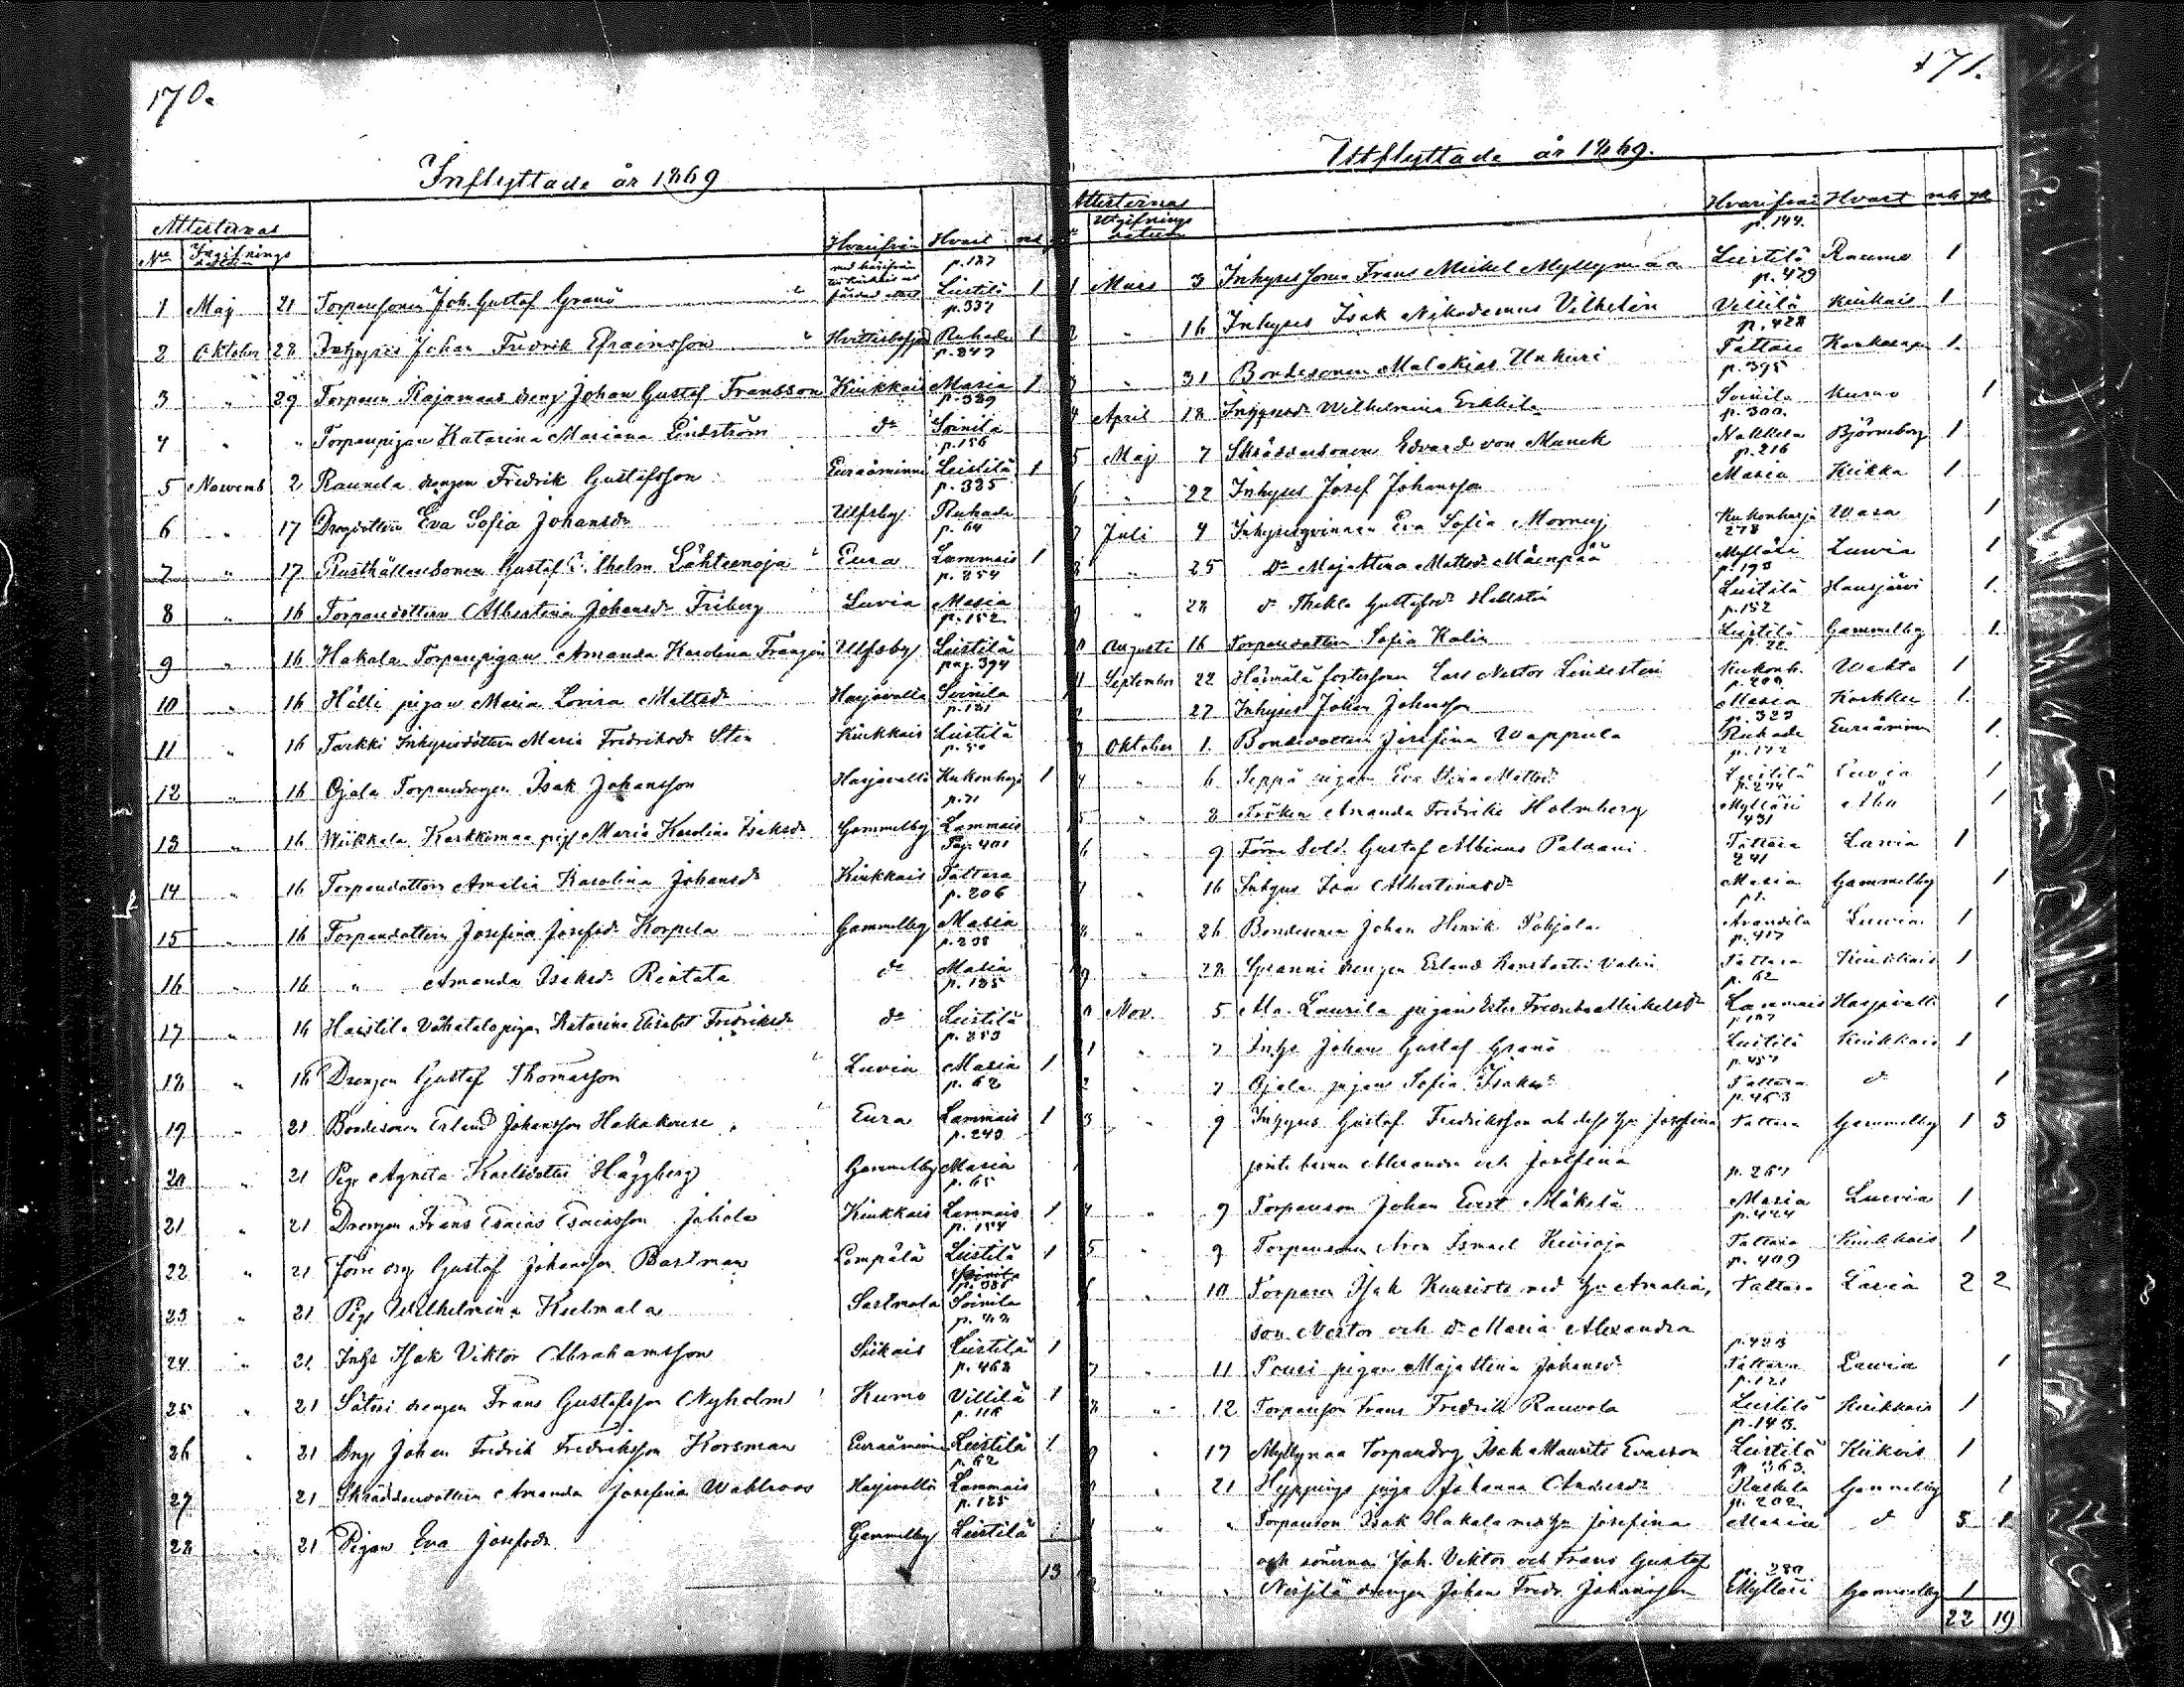 170.
Inflyttade år 1869
Attesternas
No Ingifnings datum Hvarifrån Hvart
p. 187
1 Maj 21 Torparsonen Joh. Gustaf Granö Leistilä 1
p. 337
2 Oktober 28 Inhyses Johan Fredrik Efraimsson Hvittisbofjerd Ruhade 1
p. 247
3 " 29 Torparen Rajamaas dreng Johan Gustaf Fransson Kiukkais Masia 1
p. 389
4 " " Torparepigan Katarina Mariana Lindström do Soinila
p. 156
5 Novemb 2 Raunela drengen Fredrik Gustafsson Euraåminne Leistilä 1
p. 325
6 " 17 Drengdottren Eva Sofia Johansdr Ulfsby Ruhade
p. 64
7 " 17 Rusthållaresonen Gustaf Vilhelm Lähteenoja Eura Lammais 1
p. 254
8 " 16 Torparedottren Albertina Johansdr Friberg Luvia Masia
p. 152
9 " 16 Hakala Torparepigan Amanda Karolina Fransdr Ulfsby Leistilä
pag. 394
10 " 16 Hälli pigan Maria Lovisa Mattsdr Harjavalla Soinila
p. 131
11 " 16 Tarkki Inhysesdottren Maria Fredriksdr Sten Kiukkais Leistilä
12 " 16 Ojala Torparedrengen Isak Johansson Harjavalla Kukonharja 1
p. 71
13 " 16 Wiikkala Karkkimaa pig Maria Karolina Isaksdr Gammelby Lammais
Pag. 401
14 " 16 Torparedottren Amalia Karolina Johansdr Kiukkais Tattara
p. 206
15 " 16 Torparedottren Josefina Josefsdr Korpela Gammelby Masia
p. 238
16 " 16 " Amanda Isaksdr Rintata do Masia
p. 185
17 " 16 Haistila Vähätalo pigan Katarina Elisabet Fredriksdr do Leistilä
p. 253
18 " 16 Drengen Gustaf Thomasson Luvia Masia 1
p. 62
19 " 21 Bondesonen Erland Johansson Hakakouse Eura Lammais 1
p. 243
20 " 21 Pig Agneta Karlsdotter Häggberg Gammelby Masia
p. 65
21 " 21 Drengen Frans Esaias Esaiasson Jahala Kiukkais Lammais 1
p. 154
22 " 21 Förre drg Gustaf Johansson Bastman Lempälä Leistilä 1
23 " 21 Pig Wilhelmina Kulmala Sastmola Soinila
24 " 21 Inhs Isak Viktor Abrahamsson Siikais Leistilä 1
p. 462
25 " 21 Säteri drengen Frans Gustafsson Nyholm Kumo Villilä 1
p. 116
26 " 21 Drg Johan Fredrik Fredriksson Korsman Euraåminne Leistilä 1
p. 62
27 21 Skräddaredottren Amanda Josefina Wahlroos Harjavalla Lammais
p. 125
28 " 21 Pigan Eva Josefsdr Gammelby Leistilä
13
171.
Utflyttade år 1869.
Attesternas
Utgifnings datum Hvarifrån Hvart mk qk
p. 144.
1 Mars 3 Inhyses sonen Frans Mickel Myllymaa Leistilä Raumo 1
p. 429
2 " 16 Inhyses Isak Nikodemus Vilhelin Villilä Kiukais 1
p. 428
3 " 31 Bondesonen Malakias Unkuri Tattara 1
p. 395
4 April 18 Inhysesdr Wilhelmina Erkkila Soinila Kumo 1
p. 300.
5 Maj 7 Skräddaresonen Edvard von Munck Nakkila Björneborg 1
p. 216
6 " 22 Inhyses Josef Johansson Masia Kiikka 1
7 Juli 4 Inhysesqvinnan Eva Sofia Kukonharja Wasa 1
278
8 " 25 do Maja Stina Mattsdr Mäenpää Mylläri Luvia 1
p. 193
9 " 28 do Thekla Gustafsdr Hellstén Leistilä Hausjärvi 1.
p. 152
Augusti 16 Torparedottren Sofia Kalin Leistilä Gammelby 1.
p. 22
11 September 22 Härmälä fostersonen Lars Nestor Lindsten Kukonh. 1
27 Inhyses Johan Johansson Masia 1.
p. 323
Oktober 1. Bondedottren Josefina Wappula Ruhade Euraåminne 1.
p. 172
" 6 Seppä pigan Eva Stina Mattsdr Leistilä Luvia 1
p. 274
" 8 Fröken Amanda Fredrika Holmberg Mylläri Åbo 1
431
" 9 Förre Sold. Gustaf Albinus Tattara Lavia 1
241
" 16 Inhyses Isa Albertinasdr Masia Gammelby 1
" 26 Bondesonen Johan Henrik Pohjala Arandila Luvia 1
p. 417
" 28 drengen Erland Konstantin Valin Tattara Kiukkais 1
p. 62
Nov. 5 Laurila pigan Ester Fredrika Mickelsdr Lammais Harjavalla 1
" 7 Inhs Johan Gustaf Granö Leistilä Kiukkais 1
p. 457
" 7 Ojala pigan Sofia Isaksdr Tattara do 1
p. 453
" 9 Inhyses Gustaf Fredriksson och dess hu Josefina Tattara Gammelby 1 3
jemte barnen Alexandra och Josefina
p. 267
" 9 Torpareson Johan Evert Mäkelä Masia Luvia 1
p. 424
5 " 9 Torparesonen Aron Ismael Keisoja Tattara Kiukkais 1
p. 409
10 Torparen Isak Kuusisto med hu Amalia, Tattara Lavia 2 2
son Nestor och dr Maria Alexandra
p. 423
" 11 Pouri pigan Maja Stina Johansdr Tattara Lavia 1
p. 121
" 12 Torpareson Frans Fredrik Rauvola Leistilä Kiukkais 1
p. 143.
" 17 Myllymaa Torparedrg Isak Maurits Evasson Leistilä Kiikois 1
p. 363.
" 21 Hyppings piga Johanna Andersdr Ruskila Gammelby 1
p. 202
" " Torpareson Isak Hakala med hu Josefina Masia do 3 1
och sönerna Joh. Viktor och Frans Gustaf
p. 280
" " drengen Johan Fredr. Johansson Mylläri Gammelby 1
22 19